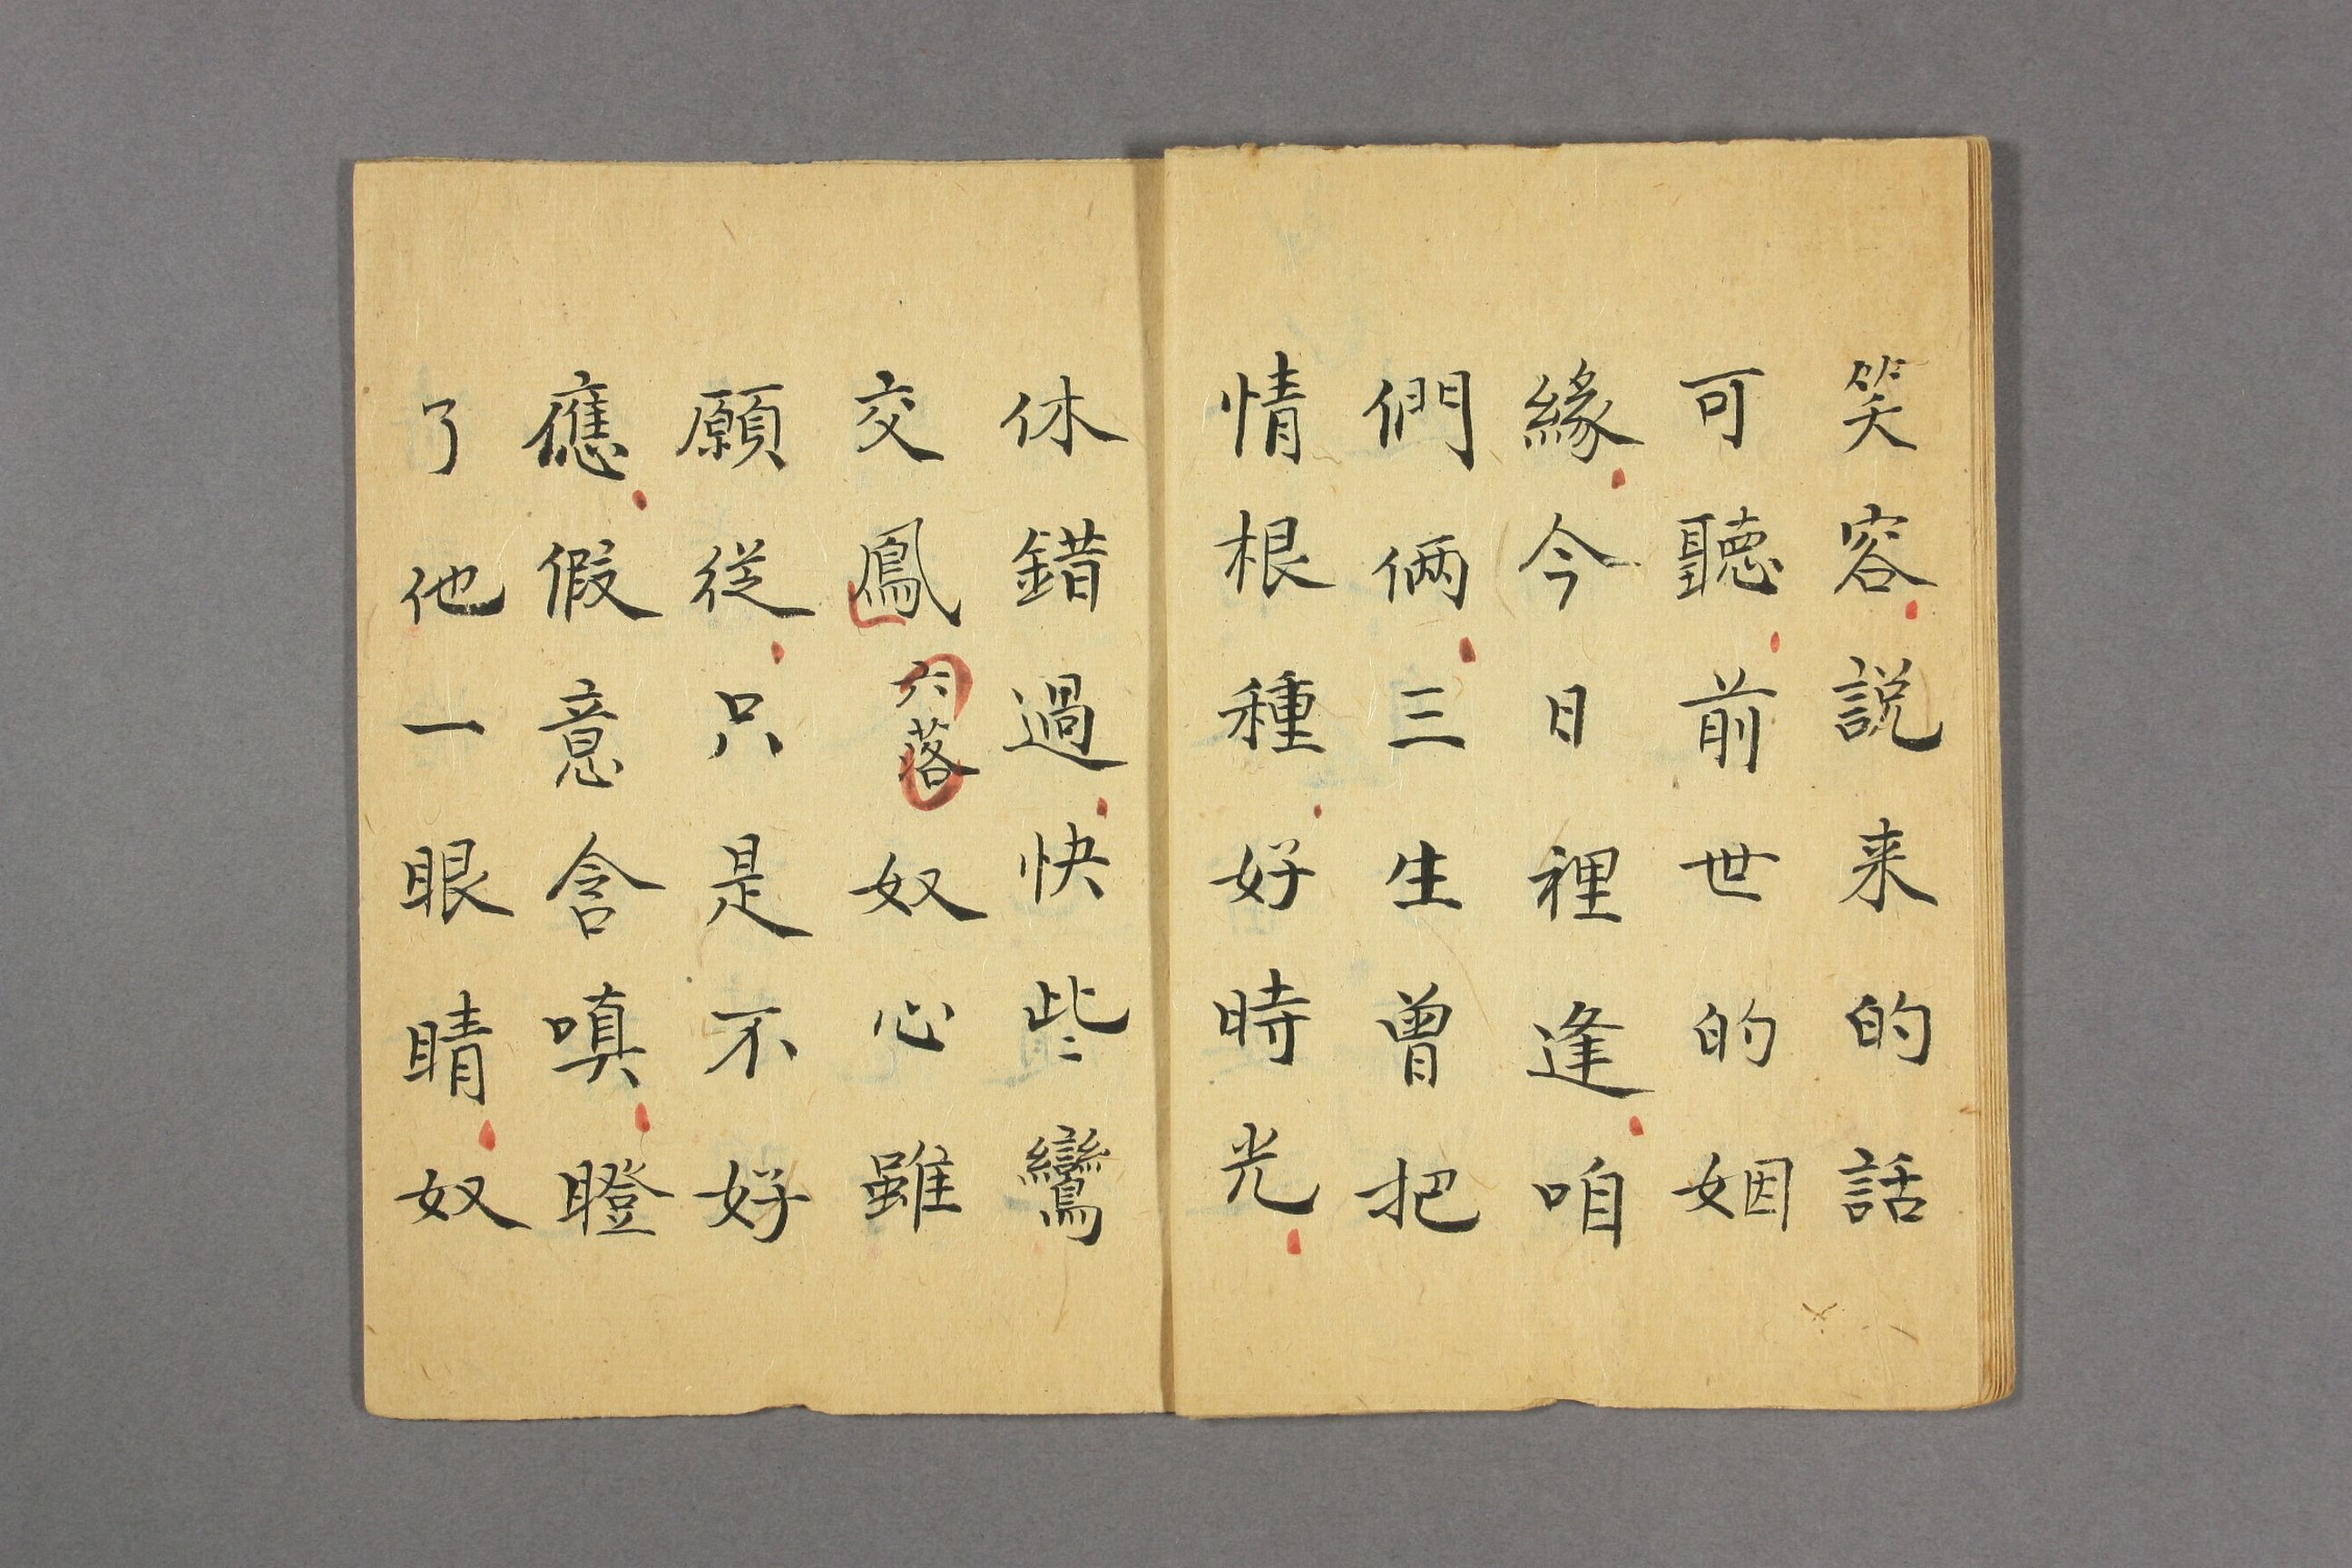 笑容説来的話
可聽前世的姻
緣今日裡逢咱
們倆三生曾把
情根種好時光
休錯過快些鸞
交鳳六落奴心雖
願從只是不好
應假意含嗔瞪
了他一眼睛奴